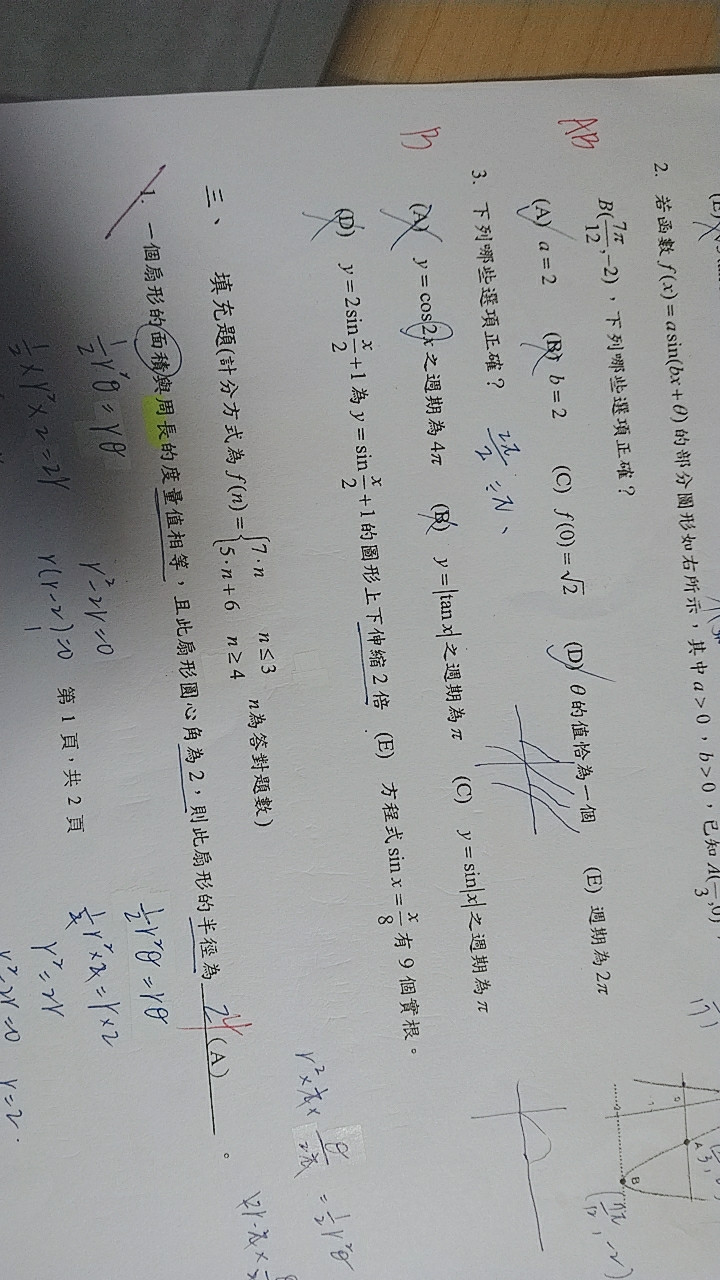 2. 若函數 f(x)=a sin(bx+θ) 的部分圖形如右所示，其中 a>0，b>0，已知 A(π/3,0)，
B(7π/12,-2)，下列哪些選項正確？
AB
(A) a=2 (B) b=2 (C) f(0)=√2 (D) θ的值恰為一個 (E) 週期為2π
3. 下列哪些選項正確？
B
(A) y=cos2x之週期為4π (B) y=|tan x|之週期為π (C) y=sin|x|之週期為π
(D) y=2sin x/2+1為y=sin x/2+1的圖形上下伸縮2倍 (E) 方程式sin x=x/8有9個實根。
三、 填充題(計分方式為 f(n)={7·n n≤3
5·n+6 n≥4 n為答對題數)
1. 一個扇形的面積與周長的度量值相等，且此扇形圓心角為2，則此扇形的半徑為 (A) 。
1/2 r²θ=rθ
1/2×r²×2=2r
r²-2r=0
r(r-2)=0
1/2 r²θ=rθ
r²=2r
r²-2r=0 r=2.
第1頁，共2頁